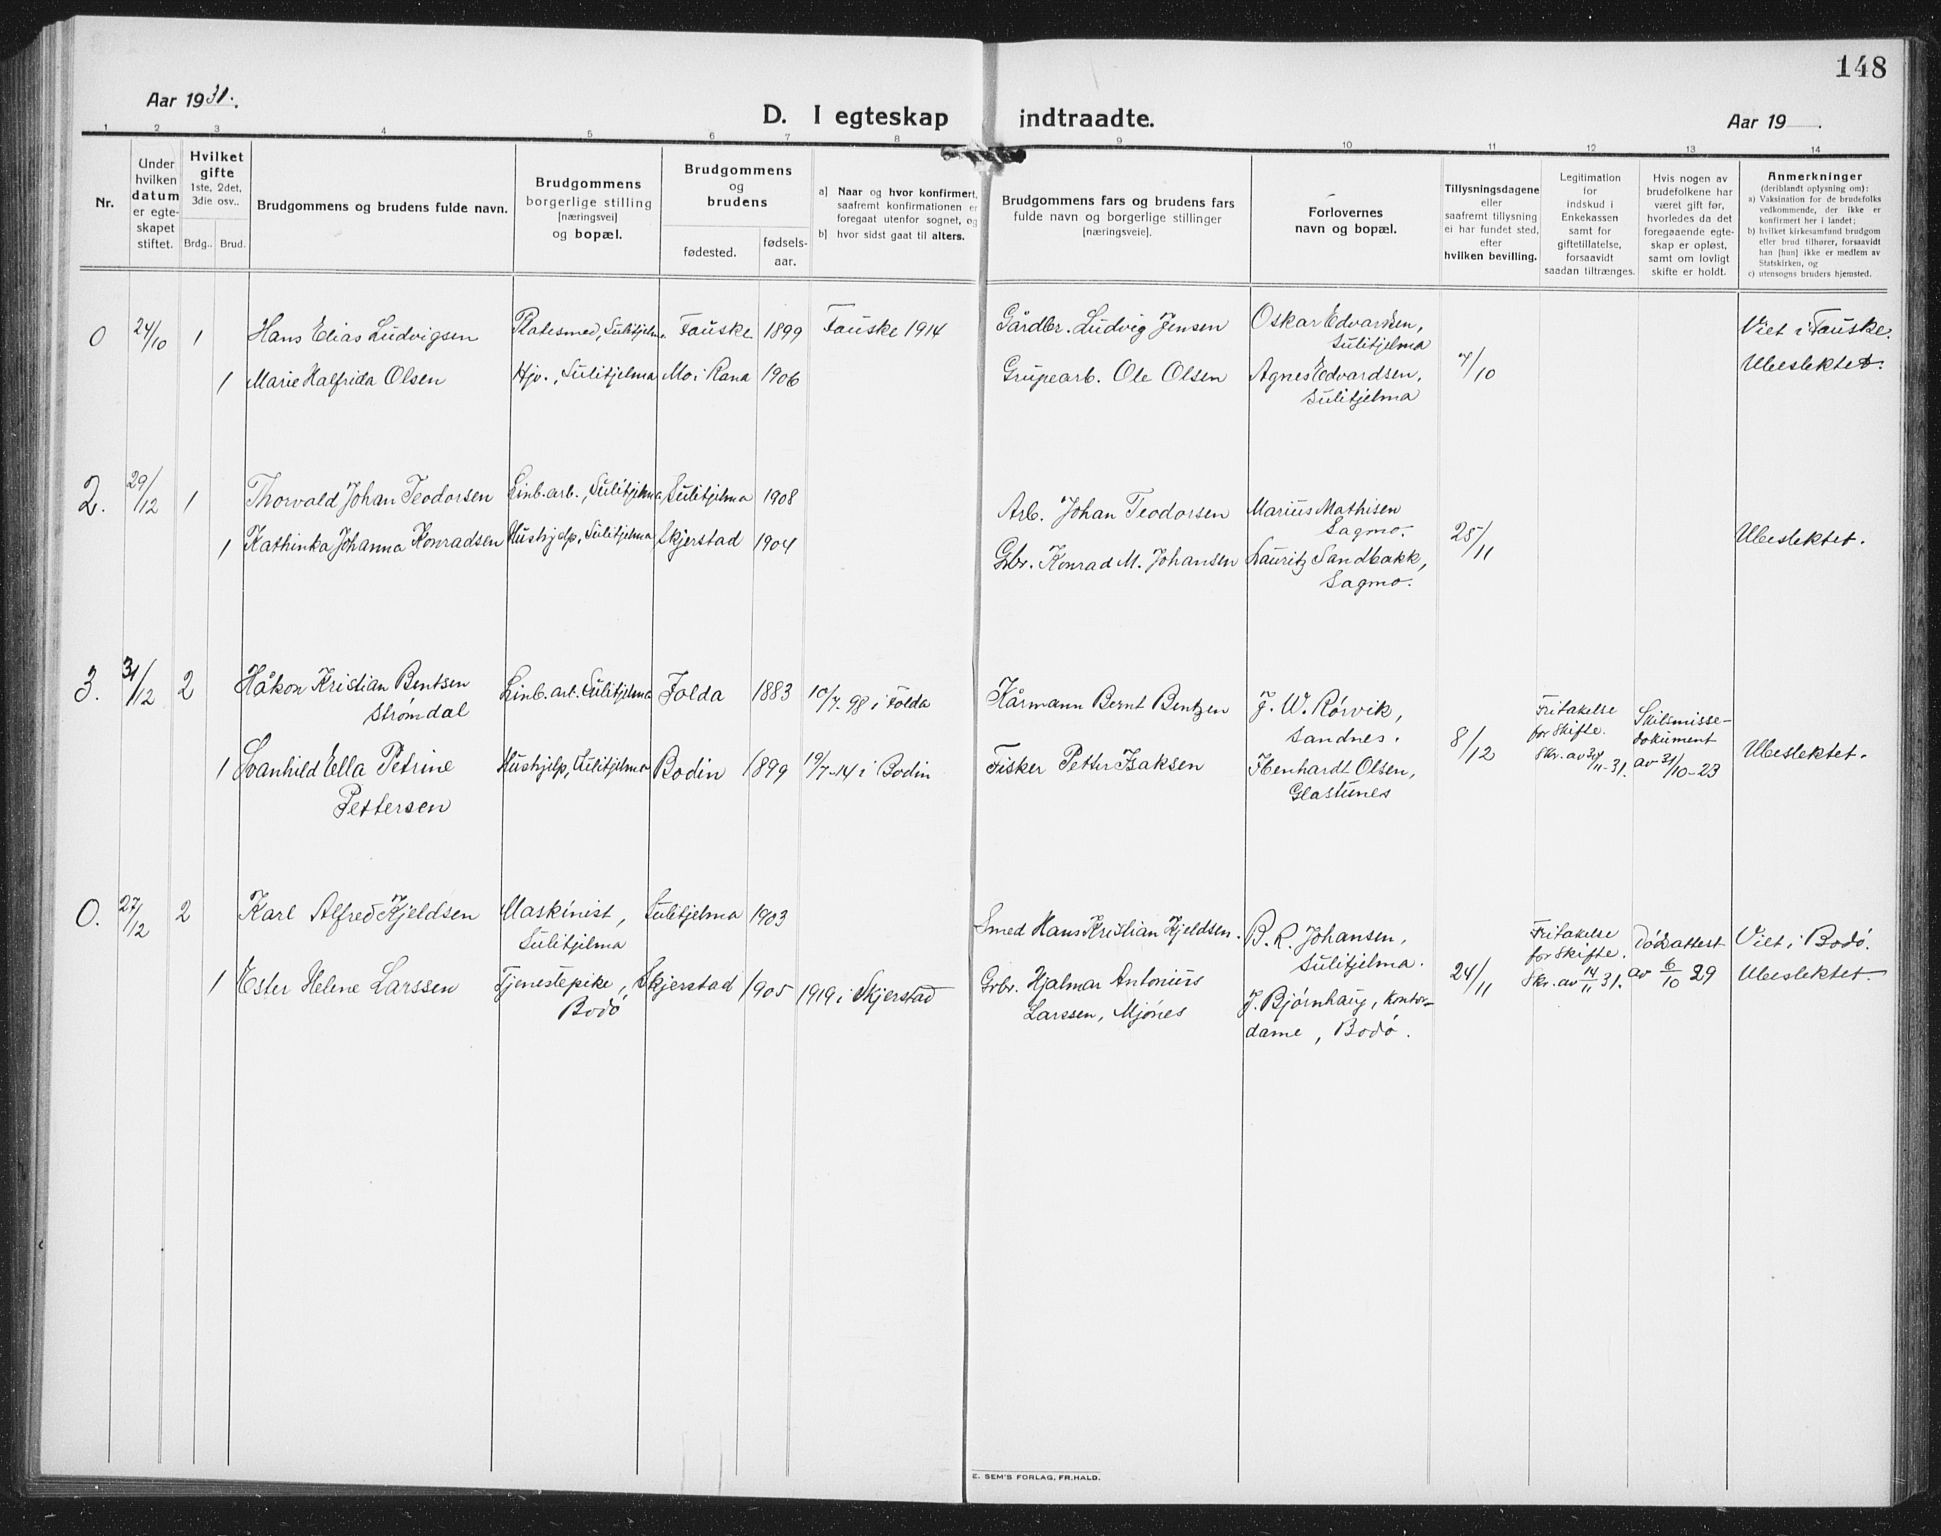 148
Aar 1931.
D. I egteskap indtraadte.
Aar 19 .
1 2 3 4 5 6 7 8 9 10 11 12 13 14
Nr.
Under
hvilken
datum
er egte-
skapet
stiftet.
Hvilket
gifte
1ste, 2det,
3die osv..
Brdg.. Brud.
Brudgommens og brudens fulde navn.
Brudgommens
borgerlige stilling
[næringsvei]
og bopæl.
Brudgommens
og
brudens
fødested.
fødsels-
aar.
a) Naar og hvor konfirmert,
saafremt konfirmationen er
foregaat utenfor sognet, og
b) hvor sidst gaat til alters.
Brudgommens fars og brudens fars
fulde navn og borgerlige stillinger
[næringsveie].
Forlovernes
navn og bopæl.
Tillysningsdagene
eller
saafremt tillysning
ei har fundet sted,
efter
hvilken bevilling.
Legitimation
for
indskud i
Enkekassen
samt for
giftetillatelse,
forsaavidt
saadan tiltrænges.
Hvis nogen av
brudefolkene har
været gift før,
hvorledes da det
foregaaende egte-
skap er opløst,
samt om lovligt
skifte er holdt.
Anmerkninger
(deriblandt oplysning om):
a) Vaksination for de brudefolks
vedkommende, der ikke er
konfirmert her i landet;
b) hvilket kirkesamfund brudgom
eller brud tilhører, forsaavidt
han [hun] ikke er medlem av
Statskirken, og
c) utensogns bruders hjemsted.
0 24/10 1 Hans Elias Ludvigsen Platesmed, Sulitjelma. Fauske 1899 Fauske 1914 Gårdbr. Ludvig Jensen Oskar Edvardsen, Viet i Fauske.
Sulitjelma
1 Marie Halfrida Olsen Hjv., Sulitjelma Mo i Rana 1906 Grupearb. Ole Olsen Agnes Edvardsen, 7/10 Ubeslektet.
Sulitjelma
2. 29/12 1 Thorvald Johan Teodorsen Linb. arb., Sulitjelma, Sulitjelma 1908 Arb. Johan Teodorsen Marius Mathisen
Sagmo.
1 Kathinka Johanna Konradsen Hushjelp, Sulitjelma Skjerstad 1904 Gbr. Konrad M. Johansen Lauritz Sandbakk, 25/11 Ubeslektet.
Sagmo.
3. 31/12 2 Håkon Kristian Bentsen Linb. arb. Sulitjelma Folda 1883 10/7-98 i Folda Kårmann Bernt Bentzen J. W. Rørvik, Fritakelse Skilsmisse-
Strømdal Sandnes. for Skifte. dokument
1 Svanhild Ella Petrine Hushjelp, Sulitjelma Bodin 1899 19/7-14 i Bodin Fisker Petter Isaksen Henhardt Olsen, 8/12 Skr. av 30/11-31. av 31/10-23 Ubeslektet.
Pettersen Glastunes
0. 27/12 2 Karl Alfred Kjeldsen Maskinist, Sulitjelma 1903 Smed Hans Kristian Kjeldsen. B. R. Johansen, Fritakelse Dødsattest Viet i Bodø.
Sulitjelma Sulitjelma. for Skifte.
1 Ester Helene Larssen Tjenestepike, Skjerstad 1905 1919 i Skjerstad Grbr. Hjalmar Antonius 24/11 Skr. av 14/11 31. av 6/10 29 Ubeslektet
Bodø Larssen, Mjønes J. Bjørnhaug, Kontor-
dame, Bodø.
E. SEM'S FORLAG, FR.HALD.